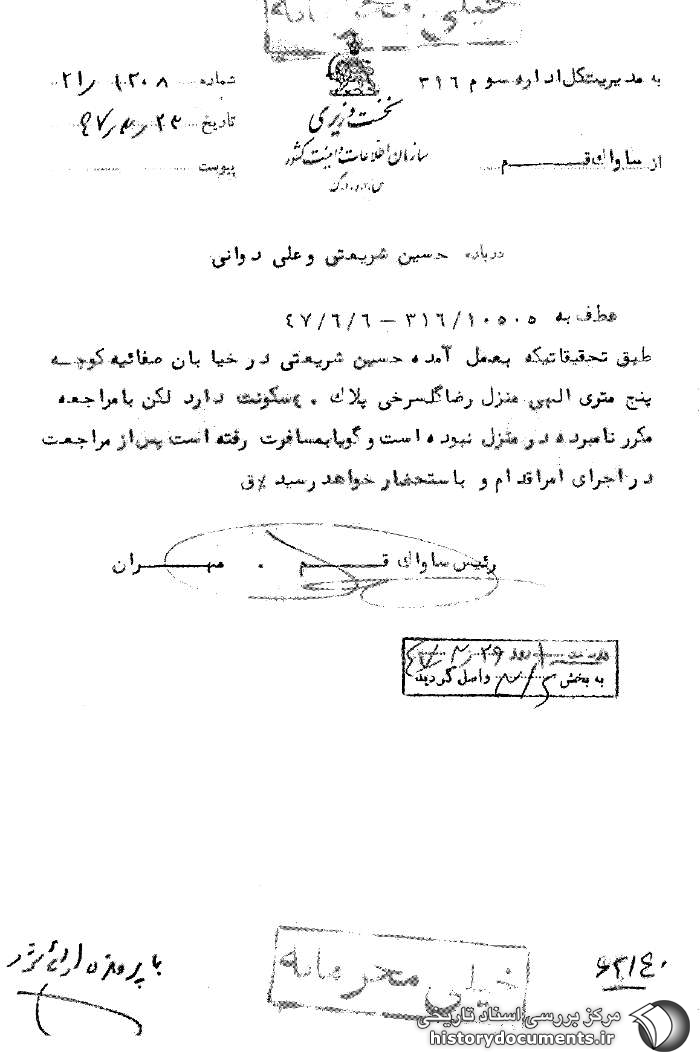 خیلی محرمانه
به مدیریت کل اداره سوم ۳۱۶
شماره ۲۱/۱۲۰۸
نخست وزیری
تاریخ
سازمان اطلاعات و امنیت کشور
س.ا.و.ا.ک
از ساواک قم
پیوست
درباره حسین شریعتی و علی دوانی
عطف به ۳۱۶/۱۰۵۰۵ – ۴۷/۶/۶
طبق تحقیقاتیکه بعمل آمده حسین شریعتی در خیابان صفائیه کوچه
پنج متری الهی منزل رضا گلسرخی پلاک ۴۰ سکونت دارد لکن با مراجعه
مکرر نامبرده در منزل نبوده است و گویا بمسافرت رفته است پس از مراجعت
در اجرای امر اقدام و باستحضار خواهد رسید
رئیس ساواک قم . مهران
روز
به بخش واصل گردید
با پرونده ارائه شود
خیلی محرمانه
مرکز بررسی اسناد تاریخی
historydocuments.ir